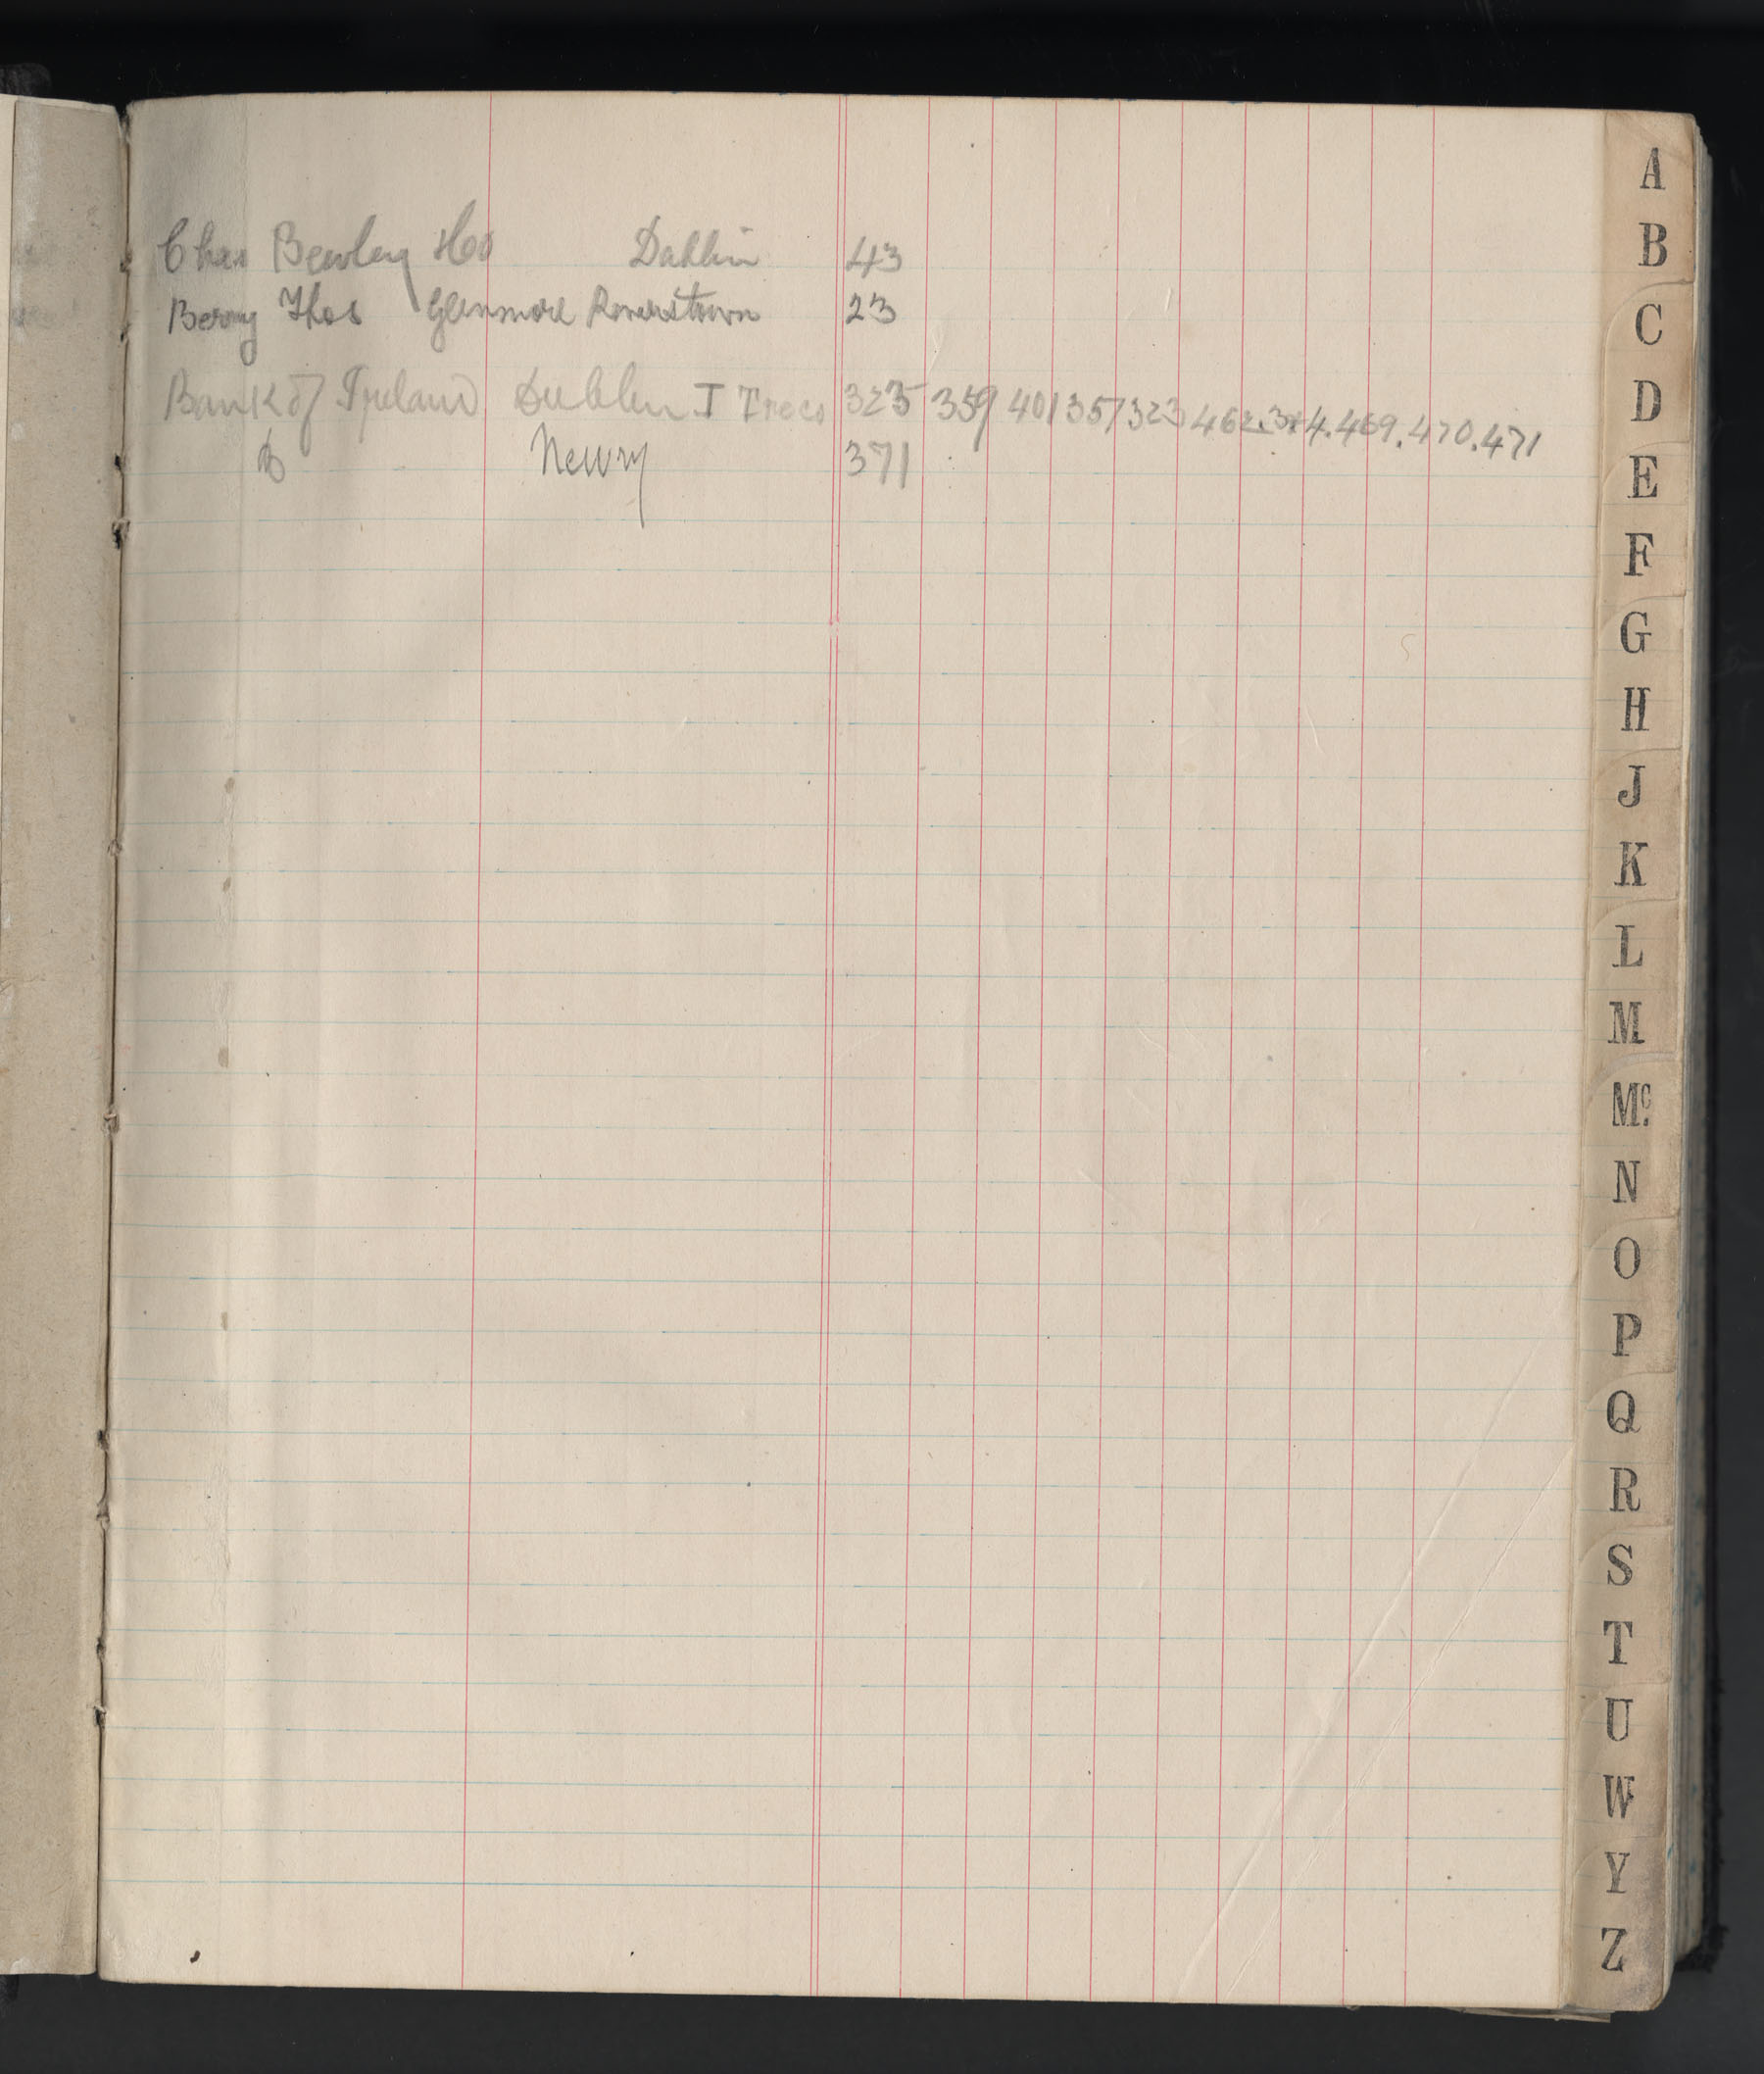 Chas Bewley & Co Dublin 43
Berry Thos Glenmore Riverstown 23
Bank of Ireland Dublin J Trees 325 359 401 357 323 462. 3 4. 469. 470. 471
Do Newry 371
A
B
C
D
E
F
G
H
J
K
L
M
Mc.
N
O
P
Q
R
S
T
U
W
Y
Z